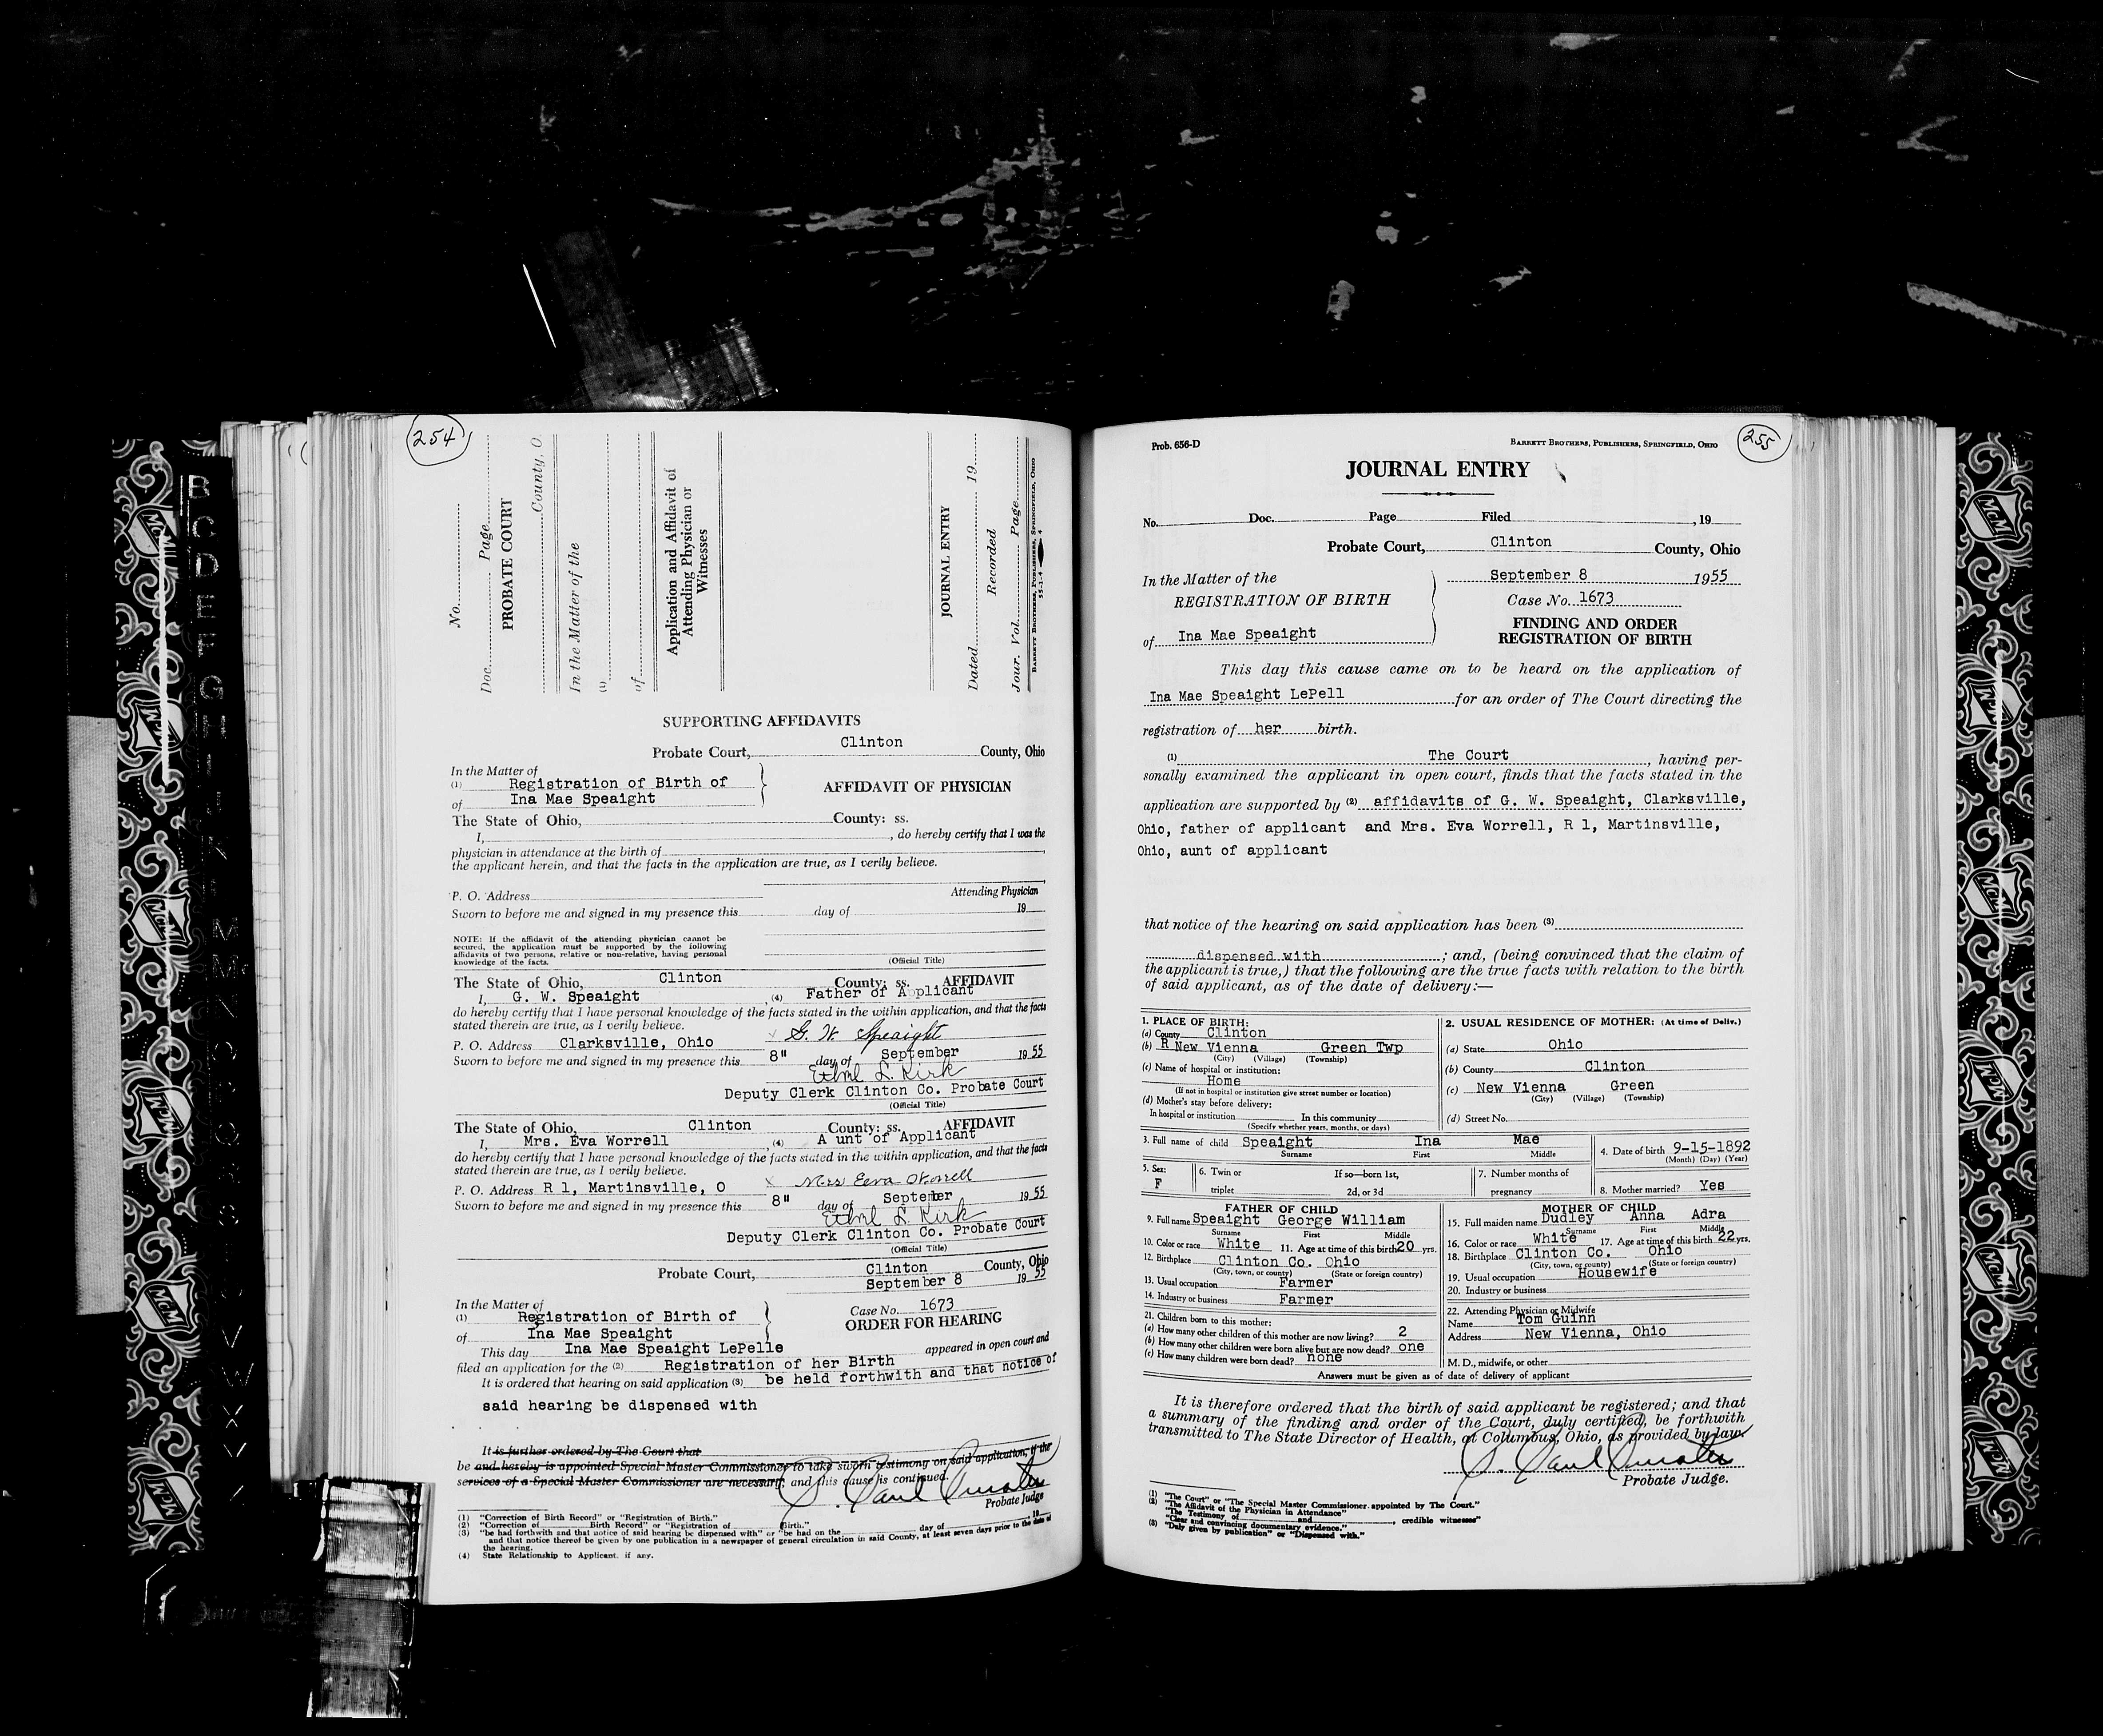 254
No.
Doc. Page
PROBATE COURT
County, O
In the Matter of the
(1)
of
Application and Affidavit of
Attending Physician or
Witnesses
JOURNAL ENTRY
Dated 19
Recorded
Jour. Vol. Page
BARRETT BROTHERS, PUBLISHERS, SPRINGFIELD, OHIO
55-1-4 4
SUPPORTING AFFIDAVITS
Probate Court, Clinton County, Ohio
In the Matter of
(1) Registration of Birth of
of Ina Mae Speaight
AFFIDAVIT OF PHYSICIAN
The State of Ohio, County: ss.
I, , do hereby certify that I was the
physician in attendance at the birth of
the applicant herein, and that the facts in the application are true, as I verily believe.
P. O. Address Attending Physician
Sworn to before me and signed in my presence this day of 19
NOTE: If the affidavit of the attending physician cannot be
secured, the application must be supported by the following
affidavits of two persons, relative or non-relative, having personal
knowledge of the facts.
(Official Title)
The State of Ohio, Clinton County: ss. AFFIDAVIT
I, G. W. Speaight , (4) Father of Applicant
do hereby certify that I have personal knowledge of the facts stated in the within application, and that the facts
stated therein are true, as I verily believe.
x G. W. Speaight
P. O. Address Clarksville, Ohio
Sworn to before me and signed in my presence this 8" day of September 1955
Ethel L. Kirk
Deputy Clerk Clinton Co. Probate Court
(Official Title)
The State of Ohio, Clinton County: ss. AFFIDAVIT
I, Mrs. Eva Worrell , (4) A unt of Applicant
do hereby certify that I have personal knowledge of the facts stated in the within application, and that the facts
stated therein are true, as I verily believe.
x Mrs Eva Worrell
P. O. Address R 1, Martinsville, O
Sworn to before me and signed in my presence this 8" day of September 1955
Ethel L. Kirk
Deputy Clerk Clinton Co. Probate Court
(Official Title)
Probate Court, Clinton County, Ohio
September 8 1955
In the Matter of
(1) Registration of Birth of
of Ina Mae Speaight
Case No. 1673
ORDER FOR HEARING
This day Ina Mae Speaight LePelle appeared in open court and
filed an application for the (2) Registration of her Birth
It is ordered that hearing on said application (3) be held forthwith and that notice of
said hearing be dispensed with
It is further ordered by The Court that
be and hereby is appointed Special Master Commissioner to take sworn testimony on said application, if the
services of a Special Master Commissioner are necessary, and this cause is continued.
Probate Judge
(1) "Correction of Birth Record" or "Registration of Birth."
(2) "Correction of Birth Record" or "Registration of Birth."
(3) "be had forthwith and that notice of said hearing be dispensed with" or "be had on the day of 19
and that notice thereof be given by one publication in a newspaper of general circulation in said County, at least seven days prior to the date of
the hearing.
(4) State Relationship to Applicant, if any.
Prob. 656-D
BARRETT BROTHERS, PUBLISHERS, SPRINGFIELD, OHIO
255
JOURNAL ENTRY
No. Doc. Page Filed , 19
Probate Court, Clinton County, Ohio
In the Matter of the
REGISTRATION OF BIRTH
of Ina Mae Speaight
September 8 1955
Case No. 1673
FINDING AND ORDER
REGISTRATION OF BIRTH
This day this cause came on to be heard on the application of
Ina Mae Speaight LePell for an order of The Court directing the
registration of her birth.
(1) The Court , having per-
sonally examined the applicant in open court, finds that the facts stated in the
application are supported by (2) affidavits of G. W. Speaight, Clarksville,
Ohio, father of applicant and Mrs. Eva Worrell, R 1, Martinsville,
Ohio, aunt of applicant
that notice of the hearing on said application has been (3)
dispensed with ; and, (being convinced that the claim of
the applicant is true,) that the following are the true facts with relation to the birth
of said applicant, as of the date of delivery:—
1. PLACE OF BIRTH:
(a) County Clinton
(b) R New Vienna Green Twp
(City) (Village) (Township)
(c) Name of hospital or institution:
Home
(If not in hospital or institution give street number or location)
(d) Mother's stay before delivery:
In hospital or institution In this community
(Specify whether years, months, or days)
2. USUAL RESIDENCE OF MOTHER: (At time of Deliv.)
(a) State Ohio
(b) County Clinton
(c) New Vienna Green
(City) (Village) (Township)
(d) Street No.
3. Full name of child Speaight Ina Mae
Surname First Middle
4. Date of birth 9-15-1892
(Month) (Day) (Year)
5. Sex: F
6. Twin or triplet
If so—born 1st, 2d, or 3d
7. Number months of pregnancy
8. Mother married? Yes
FATHER OF CHILD
9. Full name Speaight George William
Surname First Middle
10. Color or race White 11. Age at time of this birth 20 yrs.
12. Birthplace Clinton Co. Ohio
(City, town, or county) (State or foreign country)
13. Usual occupation Farmer
14. Industry or business Farmer
MOTHER OF CHILD
15. Full maiden name Dudley Anna Adra
Surname First Middle
16. Color or race White 17. Age at time of this birth 22 yrs.
18. Birthplace Clinton Co. Ohio
(City, town, or county) (State or foreign country)
19. Usual occupation Housewife
20. Industry or business
21. Children born to this mother:
(a) How many other children of this mother are now living? 2
(b) How many other children were born alive but are now dead? one
(c) How many children were born dead? none
22. Attending Physician or Midwife
Name Tom Guinn
Address New Vienna, Ohio
M. D., midwife, or other
Answers must be given as of date of delivery of applicant
It is therefore ordered that the birth of said applicant be registered; and that
a summary of the finding and order of the Court, duly certified, be forthwith
transmitted to The State Director of Health, at Columbus, Ohio, as provided by law.
Probate Judge.
(1) "The Court" or "The Special Master Commissioner appointed by The Court."
(2) "The Affidavit of the Physician in Attendance"
"The Testimony of and , credible witnesses"
"Clear and convincing documentary evidence."
(3) "Duly given by publication" or "Dispensed with."